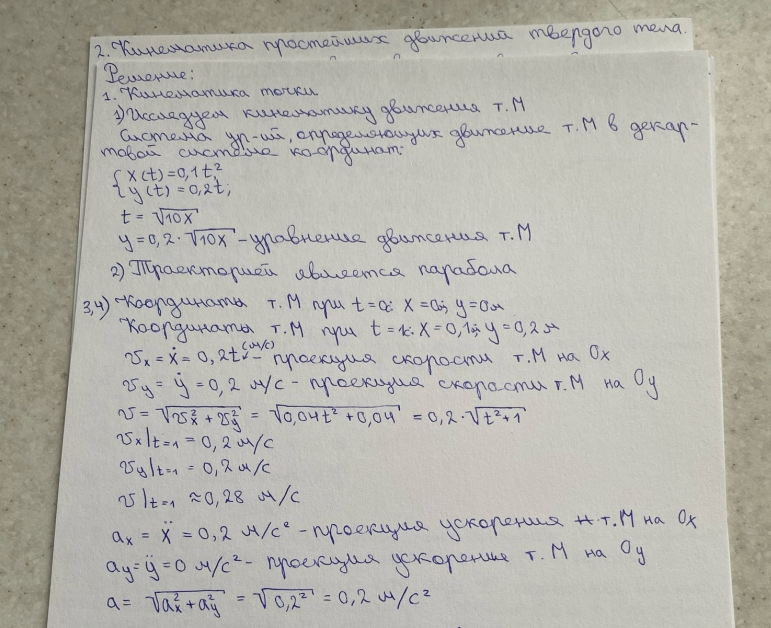 2. Кинематика простейших движений твердого тела.
Решение:
1. Кинематика точки
1) Исследуем кинематику движения т.М
Система ур-ий, определяющих движение т.М в декар-
товой системе координат:
{ x(t)=0,1t²
{ y(t)=0,2t;
t = √10x
y=0,2·√10x - уравнение движения т.М
2) Траекторией является парабола
3,4) Координаты т.М при t=0с: x=0м; y=0м
Координаты т.М при t=1с: x=0,1м; y=0,2м
(м/с)
υx = ẋ = 0,2t - проекция скорости т.М на Ox
υy = ẏ = 0,2 м/с - проекция скорости т.М на Oy
υ = √υx²+υy² = √0,04t²+0,04 = 0,2·√t²+1
υx|t=1 = 0,2 м/с
υy|t=1 = 0,2 м/с
υ|t=1 ≈ 0,28 м/с
ax = ẍ = 0,2 м/с² - проекция ускорения т.М на Ox
ay = ÿ = 0 м/с² - проекция ускорения т.М на Oy
a = √ax²+ay² = √0,2² = 0,2 м/с²